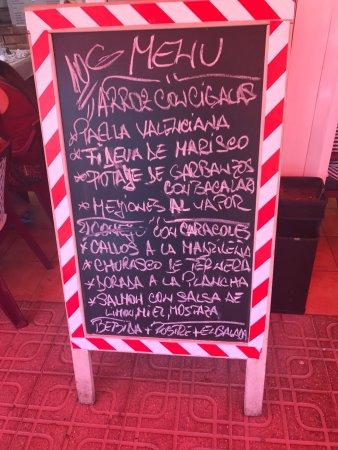 10€ MENU
1) ARROZ CON CIGALAS
* PAELLA VALENCIANA
* FIDEUA DE MARISCO
* POTAJE DE GARBANZOS
CON BACALAO
* MEJIONES AL VAPOR
2) CONEJO CON CARACOLES
* CALLOS A LA MADRILEÑA
* CHURASCO DE TERNERA
* DORADA A LA PLANCHA
* SALMON CON SALSA DE
LIMON, MIEL, MOSTAZA
BEBIDA + POSTRE +